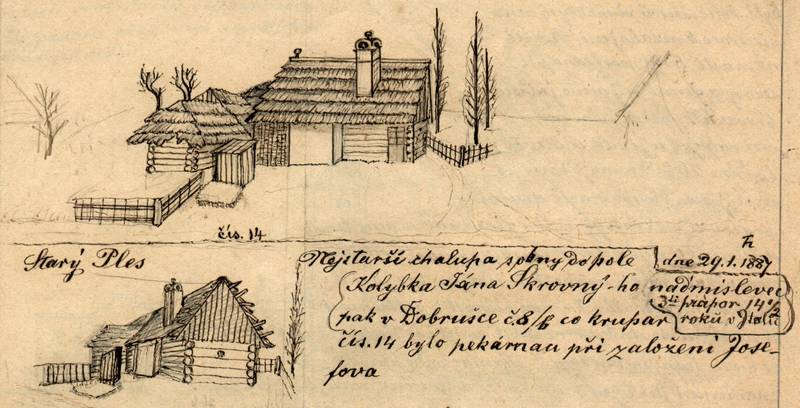 čís. 14
Starý Ples
Nejstarší chalupa s okny do pole
dne 29.1.1887
Kolybka Jána Skrovný-ho nadmyslevce
3tí prapor 14 1/2
pak v Dobrušce č. 8/ co krupař
roků v Italii
čís. 14 bylo pekárnau při založení Jose-
fova